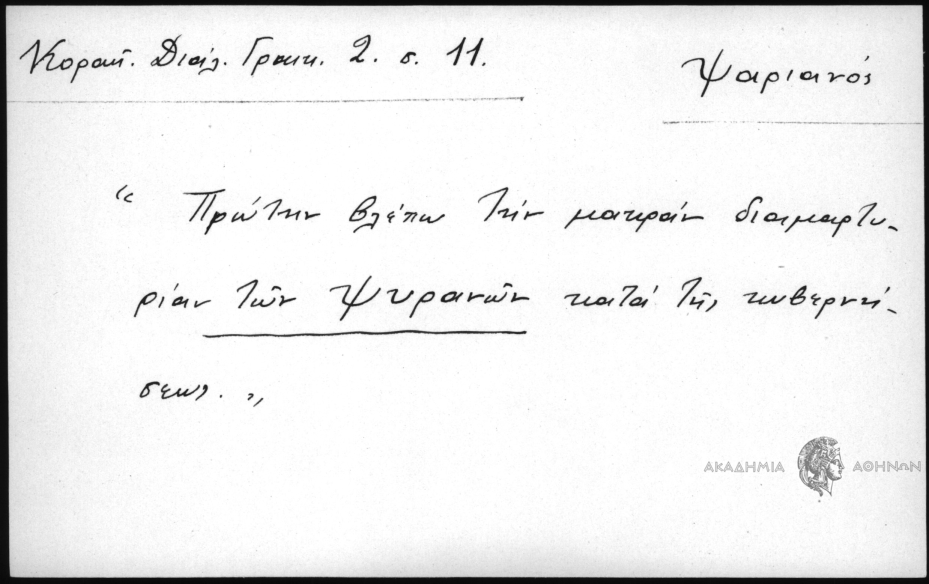 Κοραῆ. Διάλ. Γραικ. 2. σ. 11.
Ψαριανός
“ Πρώτην βλέπω τήν μακράν διαμαρτυ-
ρίαν τῶν Ψυρανῶν κατά τῆς κυβερνή-
σεως. „
ΑΚΑΔΗΜΙΑ ΑΘΗΝΩΝ